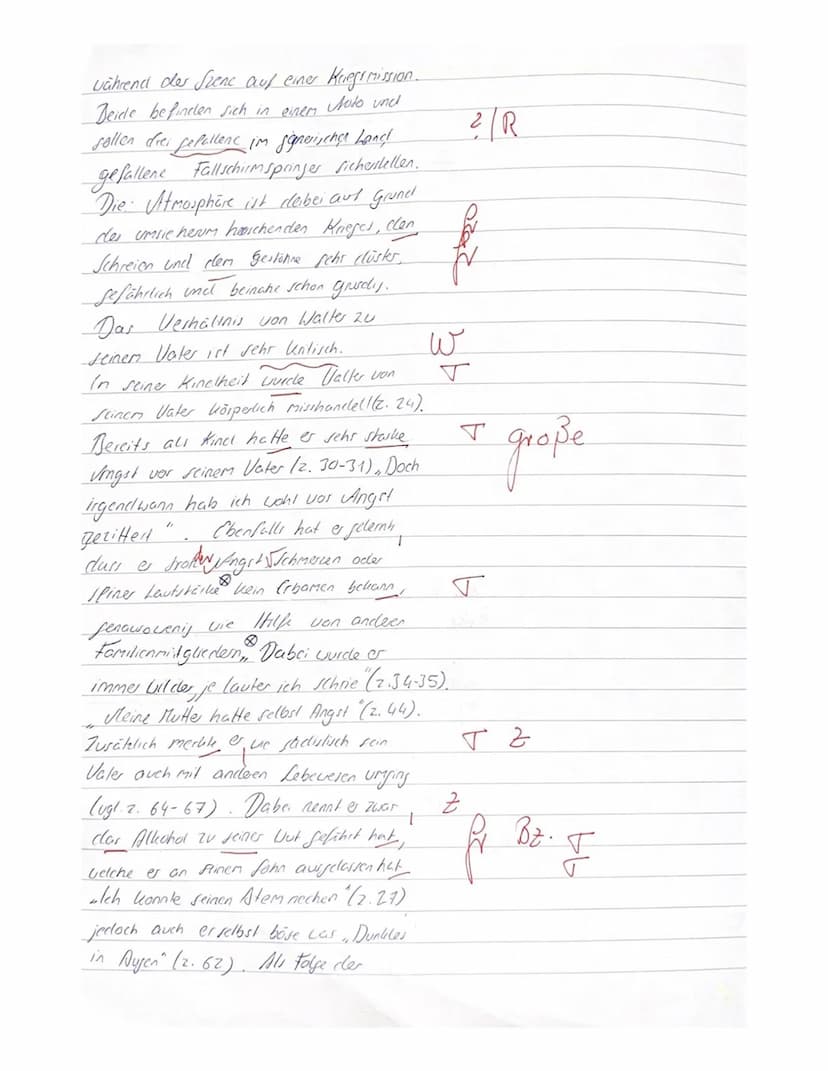 während der Szene auf einer Kriegsmission.
Beide befinden sich in einem Auto und
sollen drei gefallene im Land ?/R
gefallene Fallschirmspringer sicherstellen.
Die Atmosphäre ist dabei auf Grund
des umsicherum Krieges, den Gr
Schreien und dem Gestöhne sehr düster, Gr
gefährlich und beinahe schon gruslig.
Das Verhältnis von Walter zu
seinem Vater ist sehr kritisch. W
In seiner Kindheit wurde Walter von T
seinem Vater körperlich misshandelt (z. 24).
Bereits als Kind hatte er sehr starke T große
Angst vor seinem Vater (z. 30-31) „Doch
irgendwann hab ich wohl vor Angst
gezittert". Ebenfalls hat er gelernt,
dass er trotz der Angst, Schmerzen oder
seiner Lautstärke kein Erbarmen bekann, T
genawowenig wie Hilfe von anderen
Familienmitgliedern „Dabei wurde er
immer wilder, je lauter ich schrie" (z.34-35).
„Meine Mutter hatte selbst Angst" (z. 44).
Zusätzlich merkte er, wie sadistisch sein T Z
Vater auch mit anderen Lebewesen umging
(vgl. z. 64-67). Dabei nennt er zwar, Z
das Alkohol zu seiner Wut geführt hat, Gr Bz. T
welche er an seinem Sohn ausgelassen hat T
„Ich konnte seinen Atem riechen" (z.27)
jedoch auch er selbst böse war „Dunkles
in Augen" (z. 62). Als Folge der